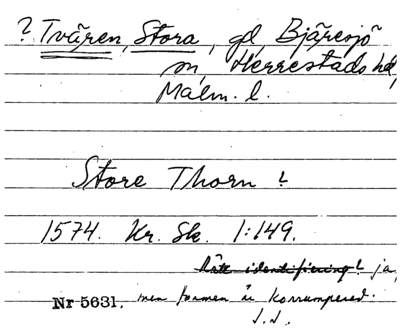 ? Tvären, Stora, gd, Bjäresjö
sn, Herrestads hd,
Malm. l.
Store Thorn ?
1574. Kr. Sk. 1:149.
Rätt identifiering? ja,
Nr 5631. men formen är korrumperad.
J.S.